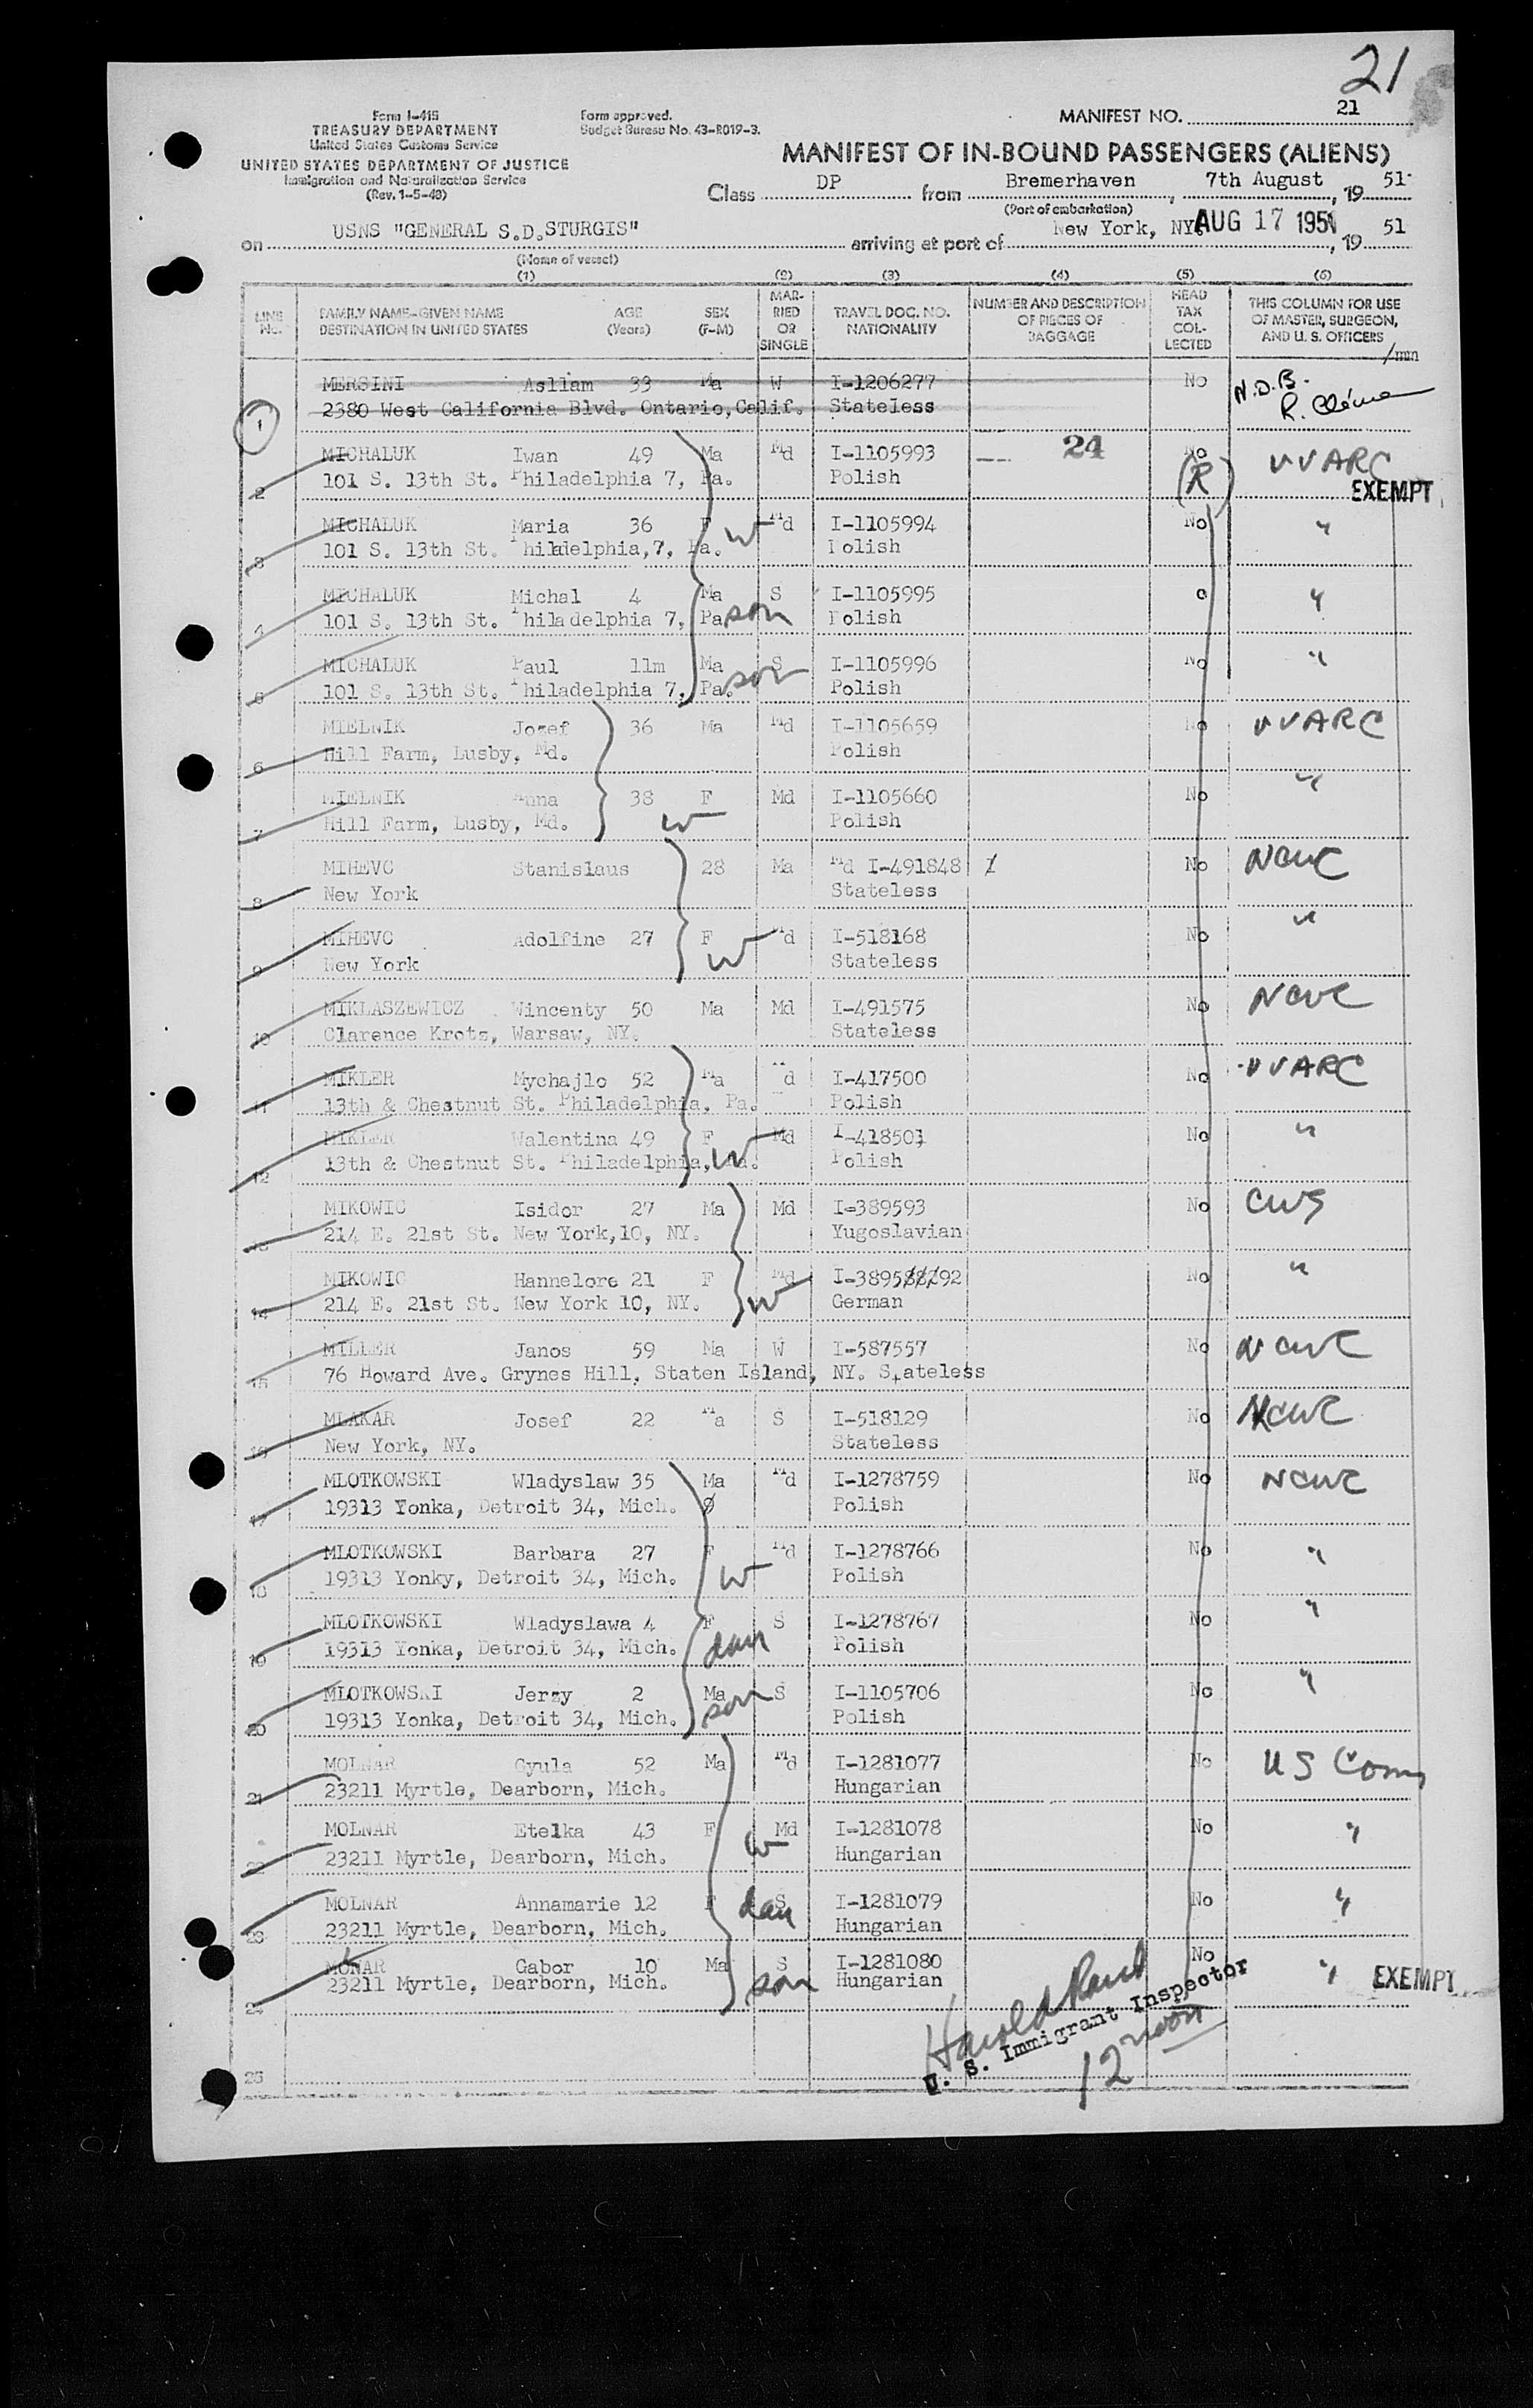 21
Form I-415
TREASURY DEPARTMENT
United States Customs Service
UNITED STATES DEPARTMENT OF JUSTICE
Immigration and Naturalization Service
(Rev. 1-5-48)
Form approved.
Budget Bureau No. 43-R019-3.
MANIFEST NO. 21
MANIFEST OF IN-BOUND PASSENGERS (ALIENS)
Class DP from Bremerhaven, 7th August, 19 51
(Port of embarkation)
on USNS "GENERAL S.D.STURGIS" arriving at port of New York, NY. AUG 17 1951, 19 51
(Name of vessel)
(1) (2) (3) (4) (5) (6)
LINE NO. FAMILY NAME-GIVEN NAME DESTINATION IN UNITED STATES AGE (Years) SEX (F-M) MARRIED OR SINGLE TRAVEL DOC. NO. NATIONALITY NUMBER AND DESCRIPTION OF PIECES OF BAGGAGE HEAD TAX COLLECTED THIS COLUMN FOR USE OF MASTER, SURGEON, AND U. S. OFFICERS
/mm
1 MERSINI Asllam 33 Ma W I-1206277 No N.O.B.
2380 West California Blvd. Ontario, Calif. Stateless R.
2 MICHALUK Iwan 49 Ma Md I-1105993 24 No VVARC
101 S. 13th St. Philadelphia 7, Pa. Polish (R) EXEMPT
3 MICHALUK Maria 36 F W Md I-1105994 No "
101 S. 13th St. Philadelphia,7, Pa. Polish
4 MICHALUK Michal 4 Ma S I-1105995 o "
101 S. 13th St. Philadelphia 7, Pa. son Polish
5 MICHALUK Paul 11m Ma S I-1105996 No "
101 S. 13th St. Philadelphia 7, Pa. son Polish
MIELNIK Jozef 36 Ma Md I-1105659 No VVARC
6 Hill Farm, Lusby, Md. Polish
MIELNIK Anna 38 F Md I-1105660 No "
7 Hill Farm, Lusby, Md. W Polish
MIHEVC Stanislaus 28 Ma Md I-491848 1 No NCWC
8 New York Stateless
MIHEVC Adolfine 27 F Md I-518168 No "
9 New York W Stateless
MIKLASZEWICZ Wincenty 50 Ma Md I-491575 No NCWC
10 Clarence Krotz, Warsaw, NY. Stateless
MIKLER Mychajlo 52 Ma d I-417500 No VVARC
11 13th & Chestnut St. Philadelphia, Pa. Polish
MIKLER Walentina 49 F Md I-418501 No "
12 13th & Chestnut St. Philadelphia, Pa. W Polish
MIKOWIC Isidor 27 Ma Md I-389593 No CWS
13 214 E. 21st St. New York,10, NY. Yugoslavian
MIKOWIC Hannelore 21 F Md I-38958892 No "
14 214 E. 21st St. New York 10, NY. W German
MILLER Janos 59 Ma W I-587557 No NCWC
15 76 Howard Ave. Grynes Hill, Staten Island, NY. Stateless
MLAKAR Josef 22 Ma S I-518129 No NCWC
16 New York, NY. Stateless
MLOTKOWSKI Wladyslaw 35 Ma Md I-1278759 No NCWC
17 19313 Yonka, Detroit 34, Mich. Polish
MLOTKOWSKI Barbara 27 F Md I-1278766 No "
18 19313 Yonky, Detroit 34, Mich. W Polish
MLOTKOWSKI Wladyslawa 4 F S I-1278767 No "
19 19313 Yonka, Detroit 34, Mich. dau Polish
MLOTKOWSKI Jerzy 2 Ma S I-1105706 No "
20 19313 Yonka, Detroit 34, Mich. son Polish
MOLNAR Gyula 52 Ma Md I-1281077 No US Comm
21 23211 Myrtle, Dearborn, Mich. Hungarian
MOLNAR Etelka 43 F Md I-1281078 No "
22 23211 Myrtle, Dearborn, Mich. W Hungarian
MOLNAR Annamarie 12 F S I-1281079 No "
23 23211 Myrtle, Dearborn, Mich. dau Hungarian
MOLNAR Gabor 10 Ma S I-1281080 No " EXEMPT
24 23211 Myrtle, Dearborn, Mich. son Hungarian
Harold Rand
U. S. Immigrant Inspector
12 noon
25